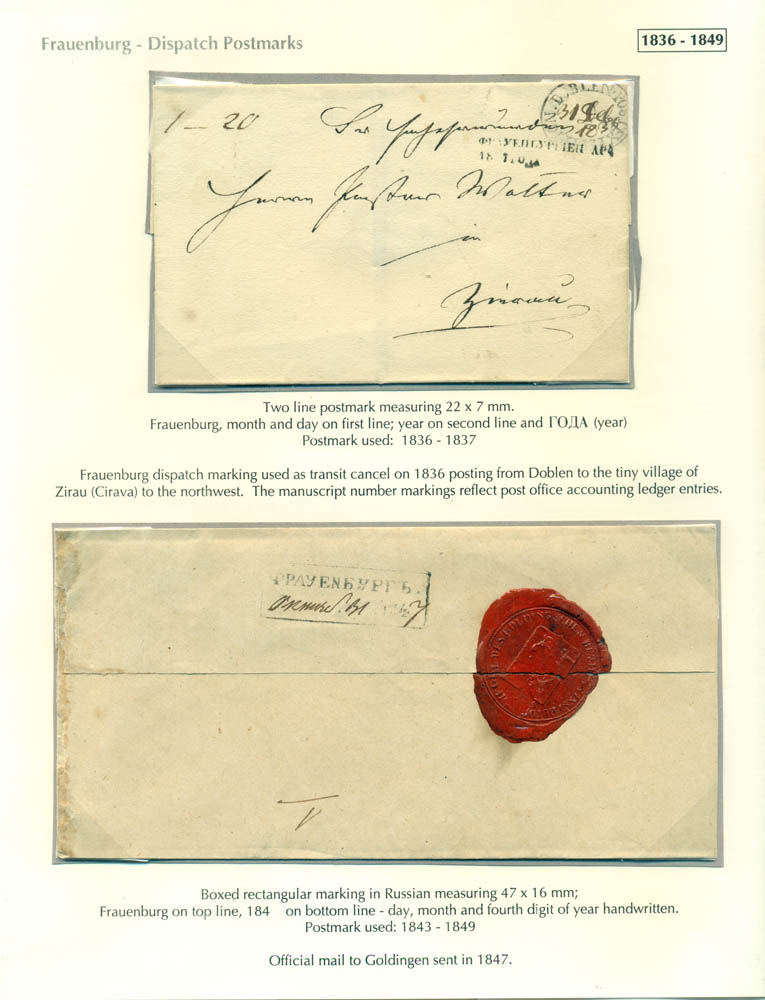 Frauenburg - Dispatch Postmarks
1836 - 1849
1 — 20
Herrn Pastor Wolter
in
Zierau
Two line postmark measuring 22 x 7 mm.
Frauenburg, month and day on first line; year on second line and ГОДА (year)
Postmark used: 1836 - 1837
Frauenburg dispatch marking used as transit cancel on 1836 posting from Doblen to the tiny village of
Zirau (Cirava) to the northwest. The manuscript number markings reflect post office accounting ledger entries.
ФРАУЕНБУРГЪ.
Boxed rectangular marking in Russian measuring 47 x 16 mm;
Frauenburg on top line, 184 on bottom line - day, month and fourth digit of year handwritten.
Postmark used: 1843 - 1849
Official mail to Goldingen sent in 1847.